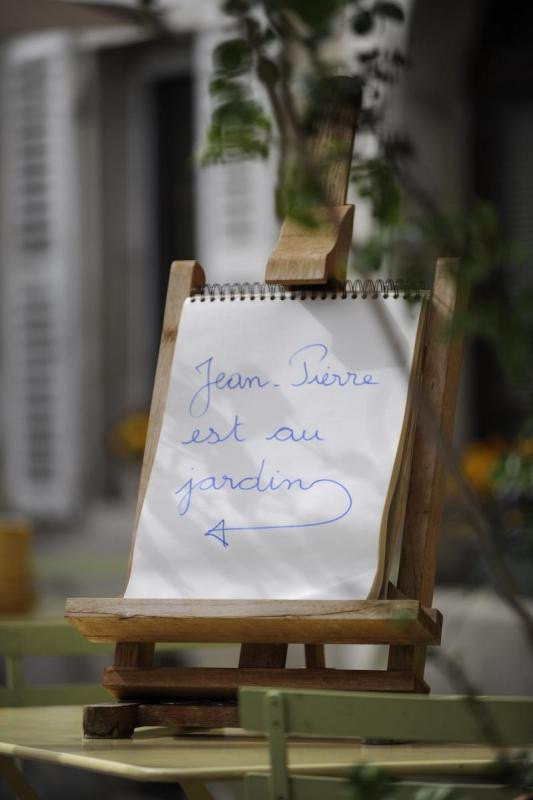 Jean-Pierre
est au
jardin